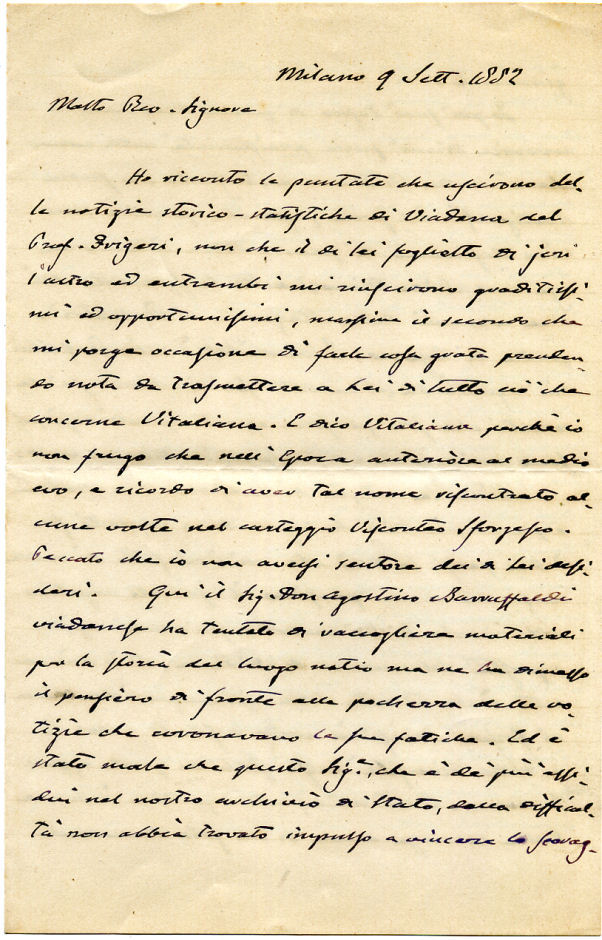 Milano 9 Sett. 1882
Molto Rev. Signore
Ho ricevuto le puntate che uscirono del-
le notizie storico-statistiche di Viadana del
Prof. , non che il di lei foglietto di jeri
l'altro ed entrambi mi riuscirono graditissi-
mi ed opportunissimi, massime il secondo che
mi porge occasione di farle cosa grata prenden-
do nota da trasmettere a Lei di tutto ciò che
concerne Vitaliana. E dico Vitaliana perchè io
non frugo che nell'Epoca anteriore al medio
evo, e ricordo di aver tal nome riscontrato al-
cune volte nel carteggio Visconteo Sforzesco.
Peccato che io non avessi sentore dei di lei desi-
deri. Qui il Sig. Don Agostino Barruffaldi
viadanese ha tentato di raccogliere materiali
per la storia del luogo natio ma ne ha dimesso
il pensiero di fronte alla pochezza delle no-
tizie che coronavano le sue fatiche. Ed è
stato male che questo Sig.e, che è de' più assi-
dui nel nostro archivio di Stato, dalla difficol-
tà non abbia trovato impulso a vincere lo scorag-